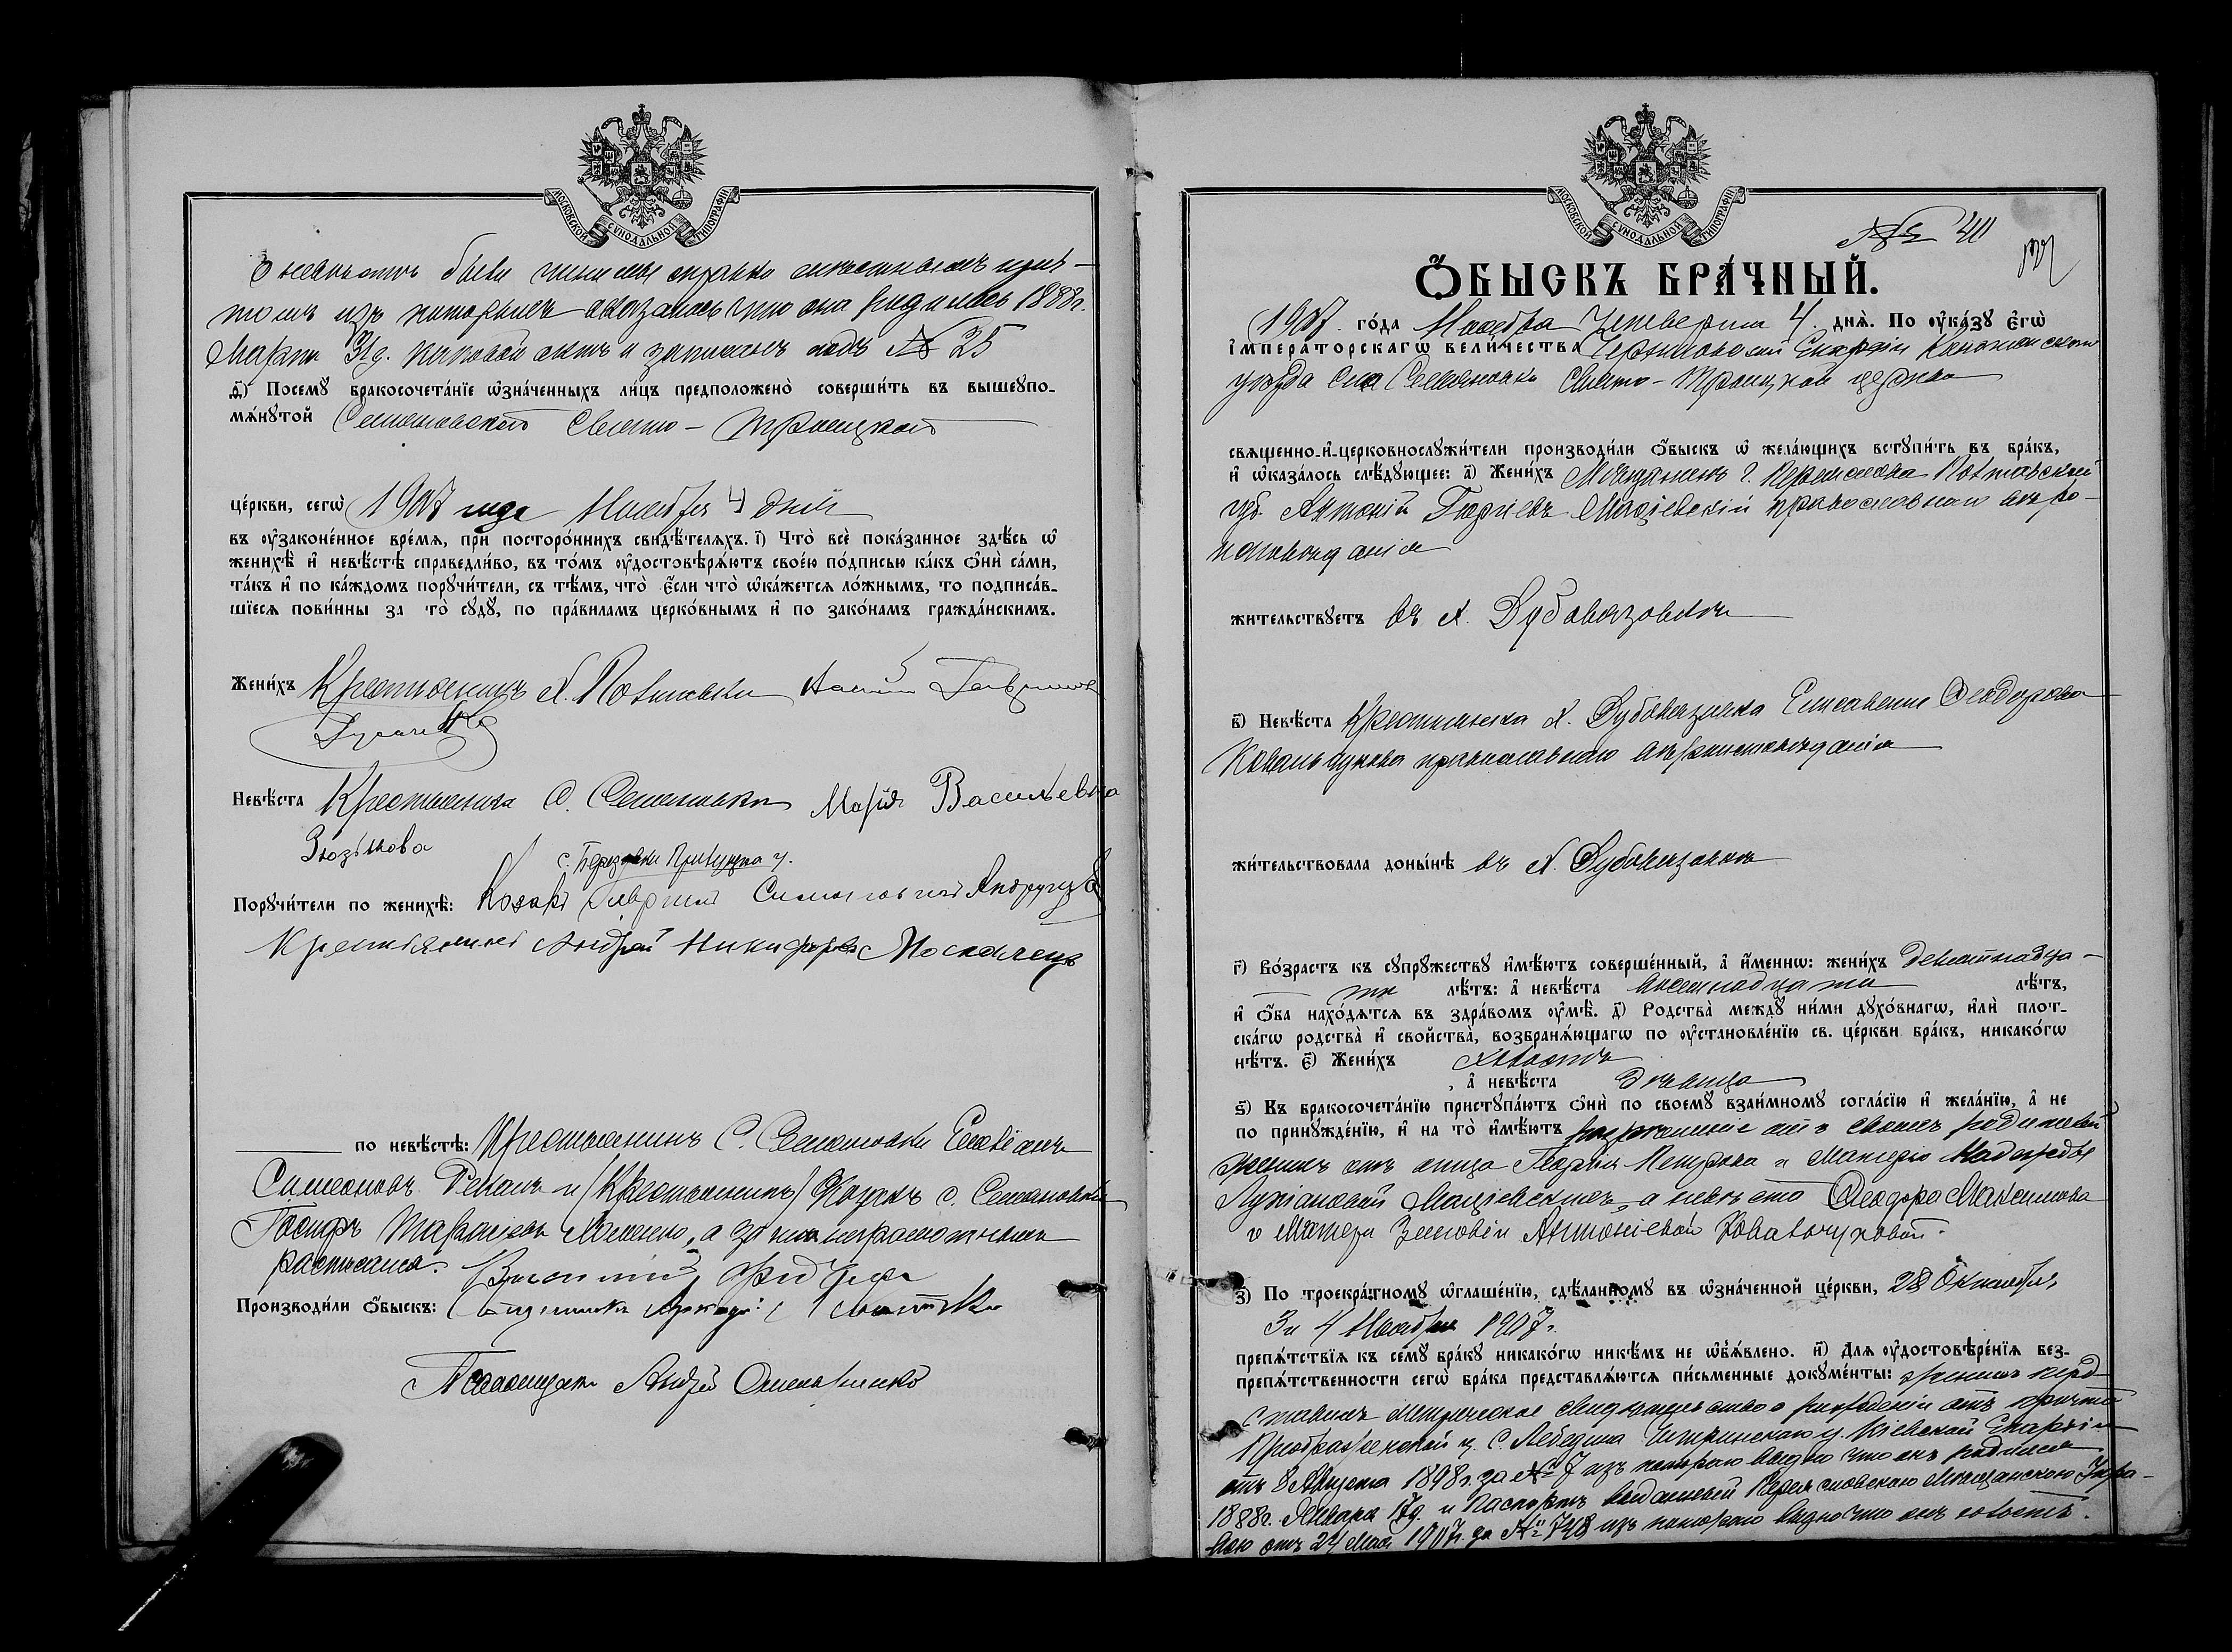 МОСКОВСКОЙ СѴНОДАЛЬНОЙ ТИПОГРАФІИ
О невѣстѣ были
томъ изъ которыхъ оказалось что она родилась 1888г.
Марта 31 д. и записанъ подъ № 25
д҃і) Посемꙋ бракосочета́нїе ѡ҆зна́ченныхъ ли́цъ предположено̀ соверши́ть въ вышеꙋпо-
мѧ́нꙋтой Семеновской Свято-Троицкой
це́ркви, сегѡ̀ 1907 года Ноября 4 дня
въ ᲂу҆законе́нное вре́мѧ, прѝ посторо́ннихъ свидѣ́телѧхъ. і҃) Что̀ всѐ пока́занное здѣ́сь ѡ҆
женихѣ̀ и҆ невѣ́стѣ справедли́во, въ то́мъ ᲂу҆достовѣрѧ́ютъ свое́ю по́дписью ка́къ ѻ҆нѝ са́ми,
та́къ и҆ по ка́ждомъ порꙋчи́тели, съ тѣ́мъ, что̀ є҆́сли что̀ ѡ҆ка́жетсѧ ло́жнымъ, то подписа́в-
шїесѧ пови́нны за то̀ сꙋдꙋ̀, по пра́виламъ церко́внымъ и҆ по зако́намъ гражда́нскимъ.
Жени́хъ Крестьянинъ х. Полтавки
Невѣ́ста Крестьянка с. Семеновки Марія Васильевна
Зюзькова
с. Прилуцка у.
Порꙋчи́тели по женихѣ̀: Козакъ Гаврiилъ
Крестьянинъ Андрей Никифоровъ Москалецъ
по невѣ́стѣ: Крестьянинъ С. Семеновки
Симеоновъ и (Крестьянинъ) Козакъ с. Семеновки
Іосифъ а за неграмотныхъ
расписался
Производи́ли ѻ҆́быскъ:
Псаломщикъ Андрей Омельяненко
МОСКОВСКОЙ СѴНОДАЛЬНОЙ ТИПОГРАФІИ
№ 40
Ѻ҆́БЫСКЪ БРА́ЧНЫЙ.
1907. го́да Ноября Четвертаго 4. днѧ̀. По ᲂу҆ка́зꙋ є҆гѡ̀
і҆мпера́торскагѡ вели́чества Черниговской Епархіи Конотопскаго
уѣзда Села Семеновки Свято-Троицкой церкви
свѧщенно-и҆-церковнослꙋжи́тели производи́ли ѻ҆́быскъ ѡ҆ жела́ющихъ встꙋпи́ть въ бра́къ,
и҆ ѡ҆каза́лось слѣ́дꙋющее: а҃) Жени́хъ Мѣщанинъ г. Переяслова Полтавской
губ. Антоній Георгіевъ Мацiевскій православнаго вѣро-
исповѣданія
жи́тельствꙋетъ въ х. Дубовязовкѣ
в҃) Невѣ́ста Крестьянка х. Дубовязовка Елисавета Ѳеодорова
Ковальчукова православнаго вѣроисповѣданія
жи́тельствовала доны́нѣ въ х. Дубовязовкѣ
г҃) Во́зрастъ къ сꙋпрꙋжествꙋ и҆мѣ́ютъ соверше́нный, а҆ и҆́меннѡ: жени́хъ девятнадца-
ти лѣ́тъ: а҆ невѣ́ста восемнадцати лѣ́тъ,
и҆ ѻ҆́ба нахо́дѧтсѧ въ здра́вомъ ᲂу҆мѣ̀. д҃) Родства̀ междꙋ̀ ни́ми дꙋхо́внагѡ, и҆лѝ плот-
ска́гѡ родства̀ и҆ свойства̀, возбранѧ́ющагѡ по ᲂу҆становле́нїю св. це́ркви бра́къ, никако́гѡ
нѣ́тъ. є҃) Жени́хъ холостъ
, а҆ невѣ́ста дѣвица
ѕ҃) Къ бракосочета́нїю пристꙋпа́ютъ ѻ҆нѝ по своемꙋ̀ взаи́мномꙋ согла́сїю и҆ жела́нїю, а҆ не
по принꙋжде́нїю, и҆ на то̀ и҆мѣ́ютъ разрѣшеніе отъ своихъ родителей
женихъ отъ отца Георгія Петрова и матери Надежды
Лукіановой Мацiевскихъ, а невѣста Ѳеодора Максимова
и Матери Зиновіи Антоніевой Ковальчуковой.
з҃) По троекра́тномꙋ ѡ҆глаше́нїю, сдѣ́ланномꙋ въ ѡ҆зна́ченной це́ркви, 28 Октября,
3 и 4 Ноября 1907 г.
препѧ́тствїѧ къ семꙋ̀ бра́кꙋ никако́гѡ никѣ́мъ не ѡ҆б̾ѧ́влено. и҃) Длѧ ᲂу҆достовѣре́нїѧ без-
препѧ́тственности сегѡ̀ бра́ка представлѧ́ютсѧ пи́сьменные докꙋме́нты: женихъ пред-
ставилъ метрическое свидѣтельство о рожденіи отъ причта
Преображенской ц. С. Лебедина Чигринскаго у. Кіевской Епархіи
отъ 8 Августа 1898 г. за № 7 изъ котораго видно что онъ родился
1888 г. Января 17 д. и Паспортъ выданный Переясловскою Мѣщанскою Упра-
вою отъ 24 Мая 1907 г. за № 748 изъ котораго видно что онъ холостъ.